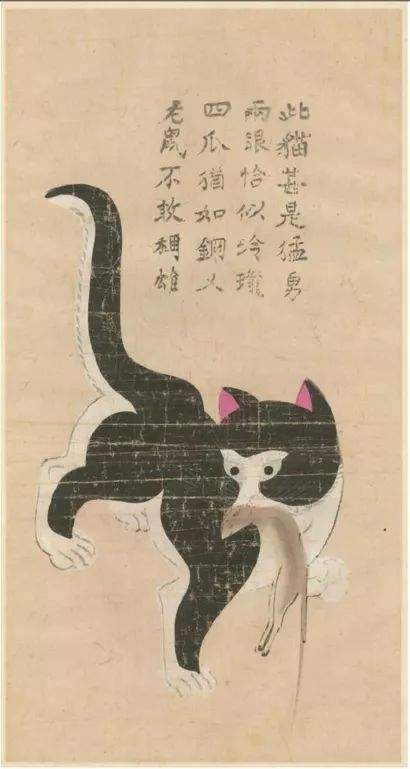 此貓甚是猛勇
兩眼恰似泠瓏
四爪猶如鋼叉
老鼠不敢稱雄